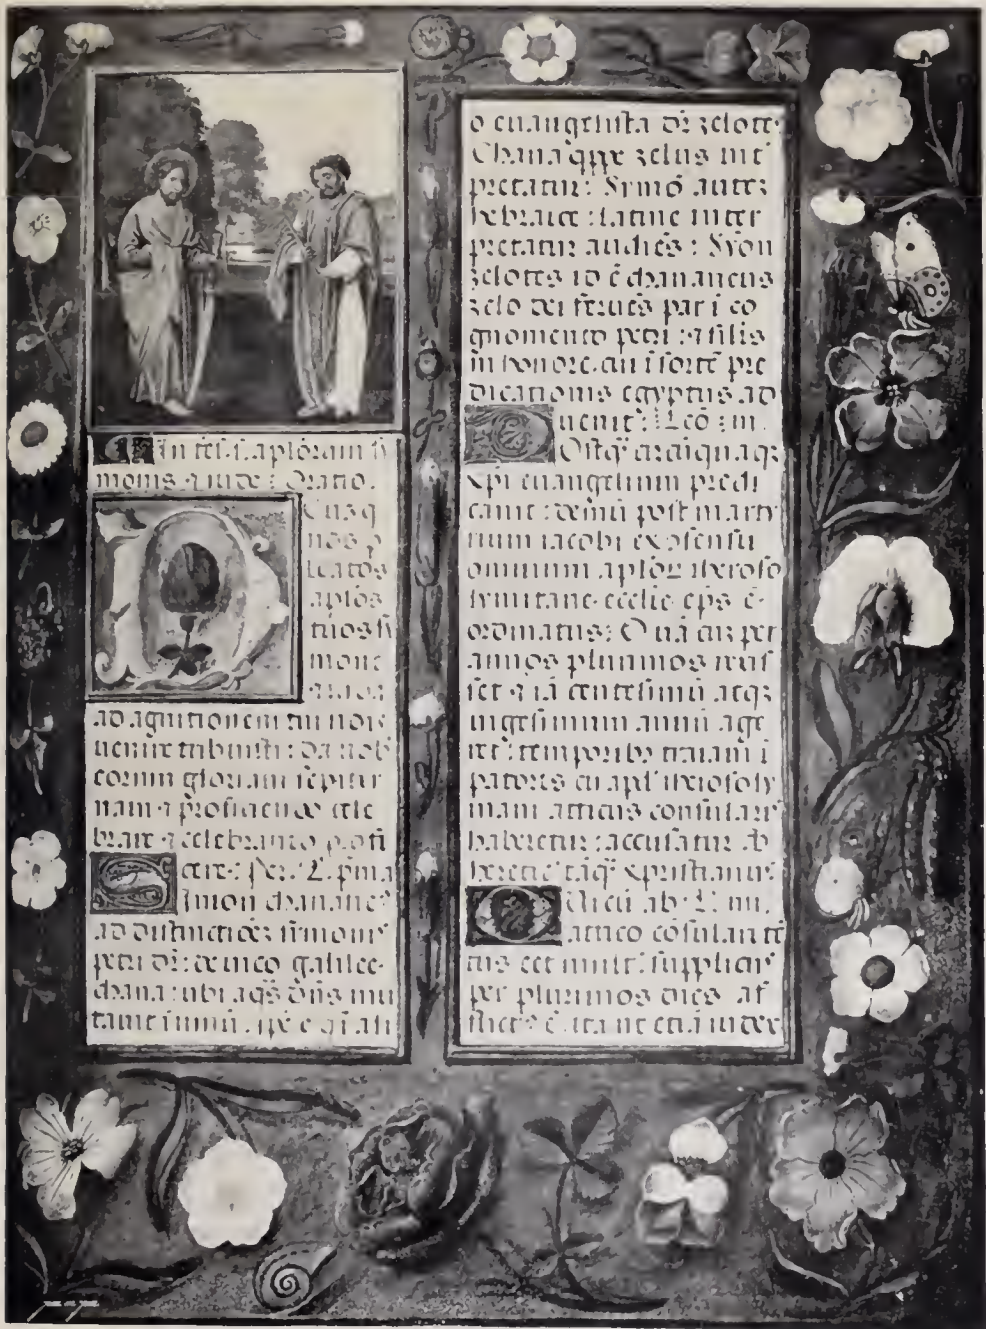 In fest. s. aplorum sy
monis ⁊ iude: Oratio.
eus q
nos p
beatos
aplos
tuos sy
mone
ad agnitionem tui nois
uenire tribuisti: da nob
eorum gloriam sepiter
nam ⁊ proficiendo cele
brare ⁊ celebrando profi
cere: Per. L. pma
Simon chanane
ad distinctioez simonis
petri dr: de uico galilee
chana: ubi aqs dns mu
tauit uinum. ipe e q i ali
o euangelista dr zelotes
Chana qppe zelus int
pretatur: Symo autez
hebraice: latine inter
pretatur audies: Syon
zelotes id e chananeus
zelo dei feruens par i co
gnomento petri: ⁊ silis
in honore. cui i sorte pre
dicationis egyptus ad
uenit: Leo: iii.
Postq
xpi euangelium predi
cauit: demu post marty
rium iacobi
omnium aplor iheroso
lymitane ecclie eps e
ordinatus: Qua cuz per
annos plurimos reris
set ⁊ ia centesimu atqz
uigesimum annu age
ret: temporibs traiani i
patoris cu apd iherosoly
mam atticus consularis
haberetur: accusatur ab
heretic xpristianus
attico cosulari te
tus cet mult. supplicijs
per plurimos dies af
flict e. ita ut etia iudex